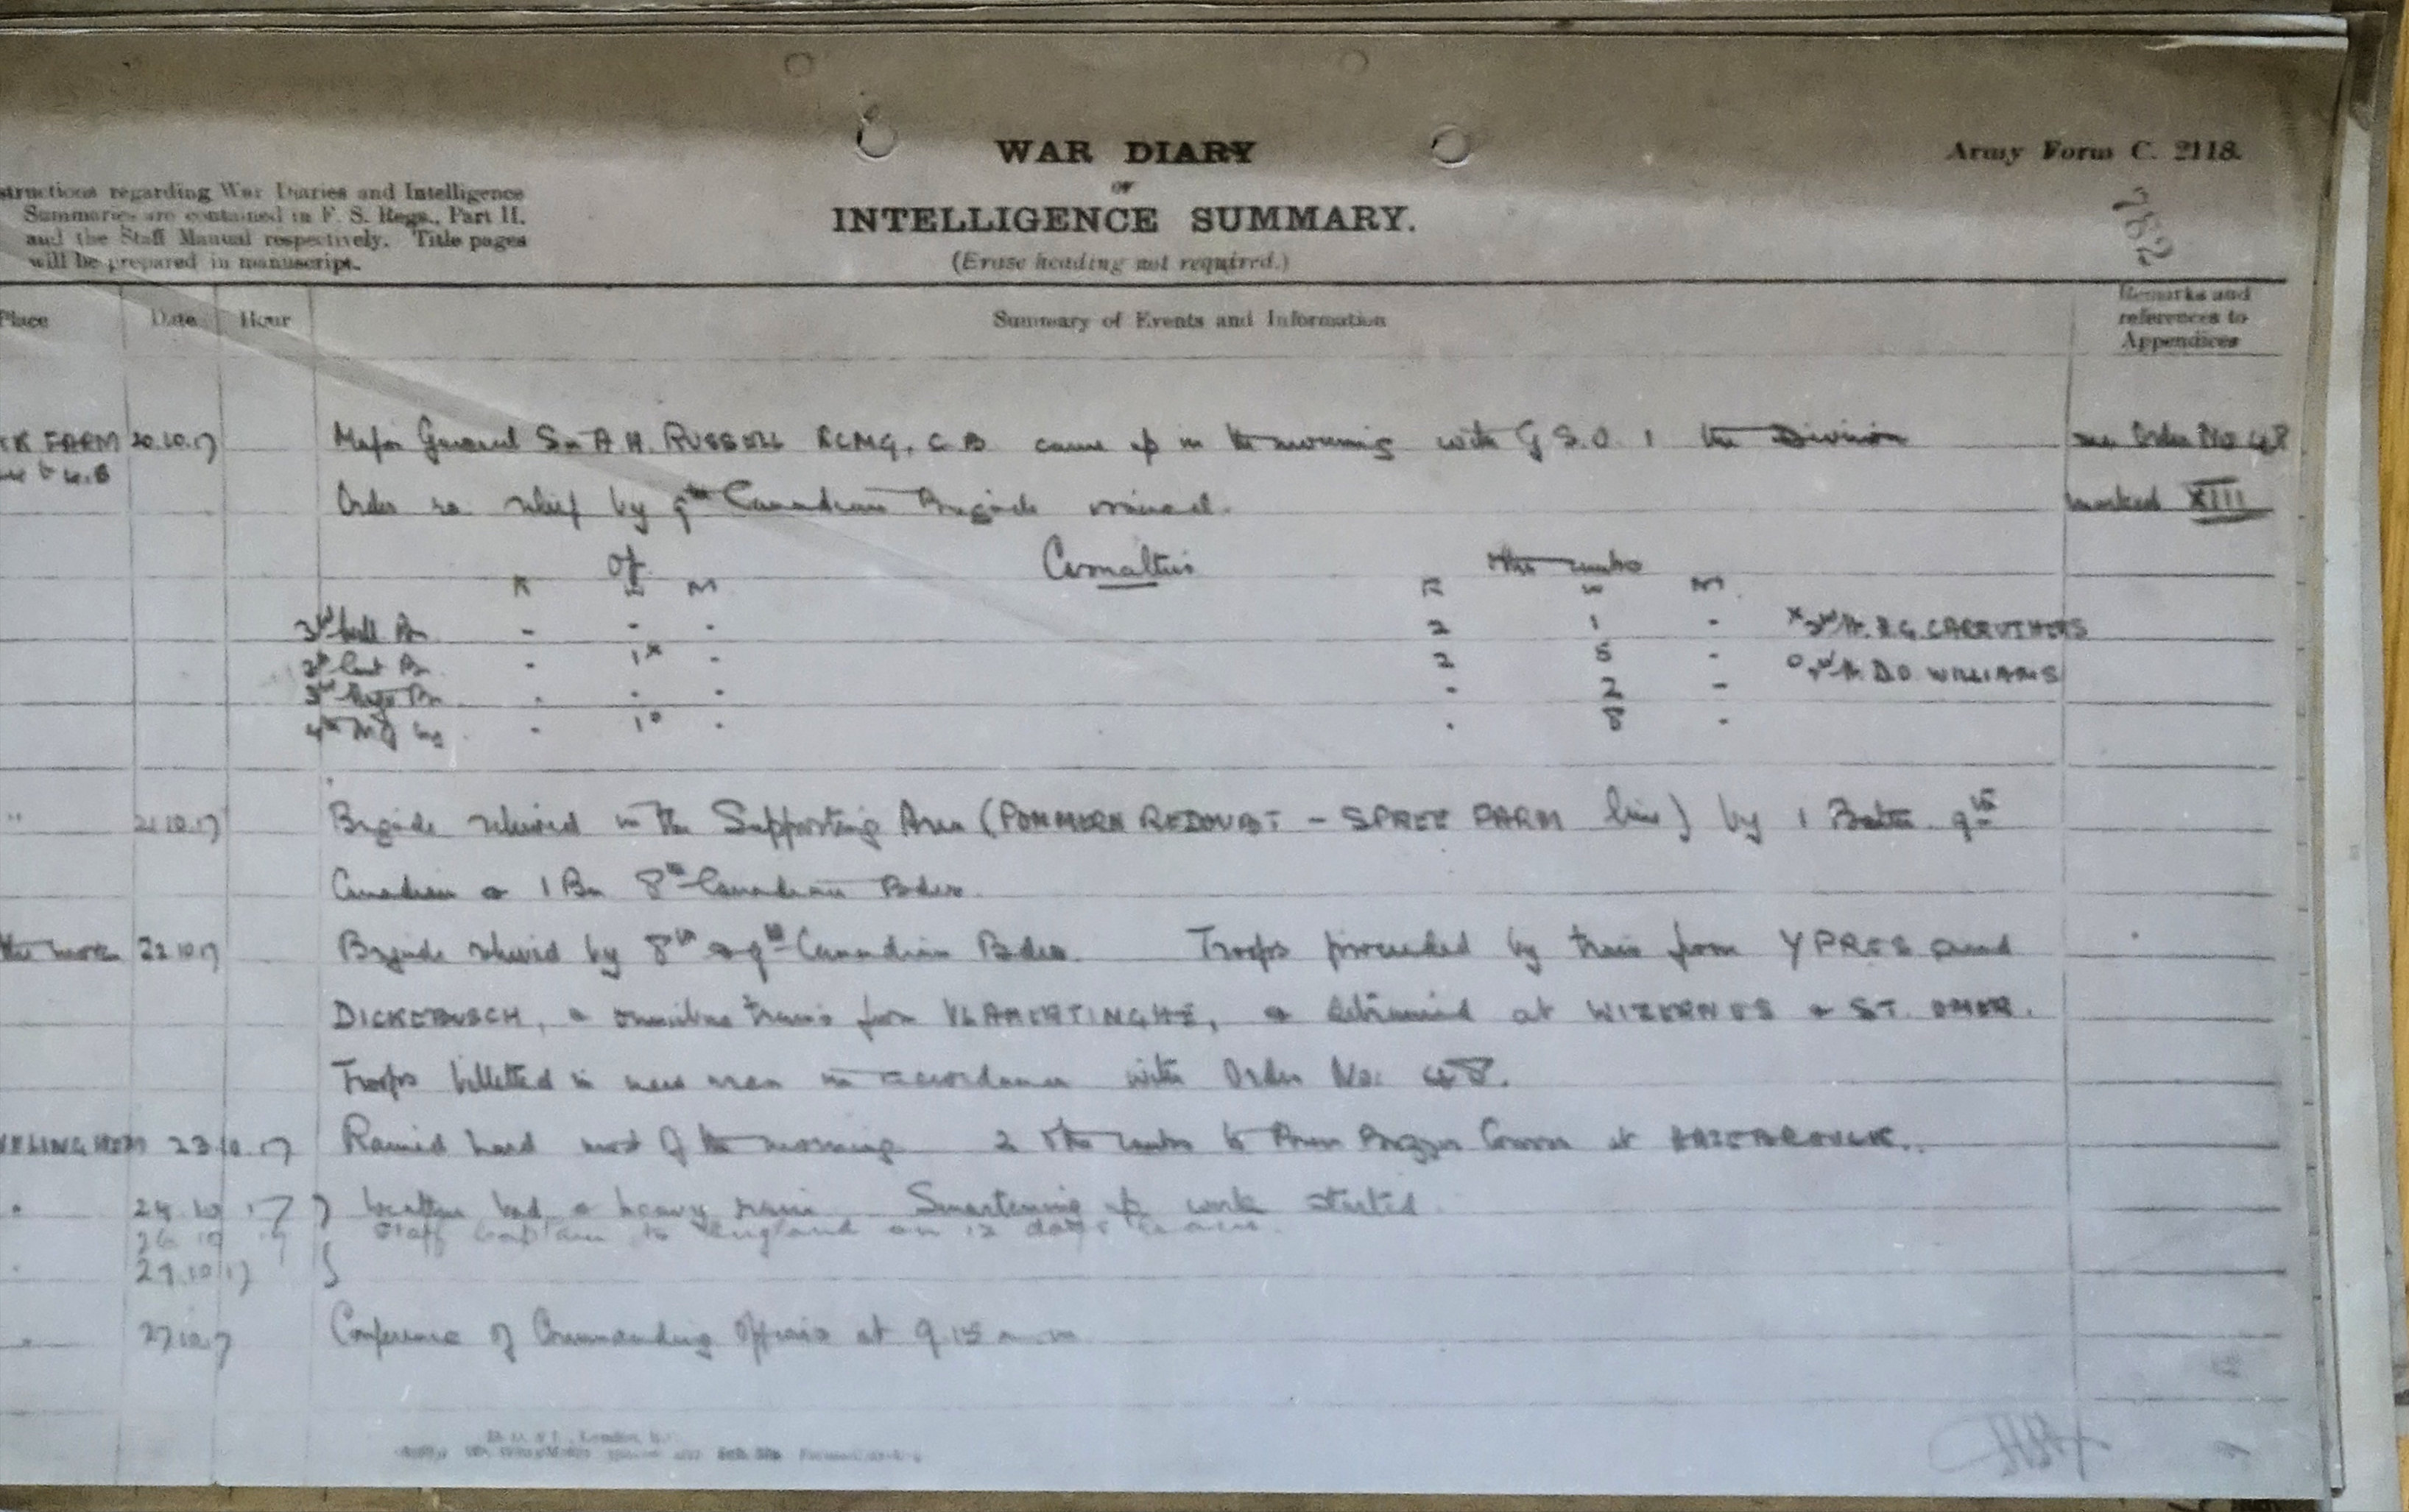 WAR DIARY
or
INTELLIGENCE SUMMARY.
(Erase heading not required.)
Army Form C. 2118.
782
structions regarding War Diaries and Intelligence
Summaries are contained in F. S. Regs., Part II.
and the Staff Manual respectively. Title pages
will be prepared in manuscript.
Place Date Hour Summary of Events and Information Remarks and
references to
Appendices
FARM 20.10.17 Major General Sir A H. RUSSELL KCMG, C.B. came up in the morning with G.S.O. 1 the Division see Order No 48
Order re relief by 9th Canadian Brigade received. marked XIII
Of Casualties Other ranks
K W M K W M
3rd Bn - - - 2 1 - x 2nd Lt. R.G. CARRUTHERS
3rd Cant Bn - 1x - 2 5 - o 2nd Lt. D.O. WILLIAMS
3rd Bn - - - - 2 -
4th M G Coy - 1o - - 8 -
" 21.10.17 Brigade relieved in the Supporting Area (POMMERN REDOUBT - SPREE FARM line) by 1 Battn 9th
Canadian & 1 Bn 8th Canadian Bdes.
22.10.17 Brigade relieved by 8th & 9th Canadian Bdes. Troops proceeded by train from YPRES and
DICKEBUSCH, & omnibus trains from VLAMERTINGHE, & detrained at WIZERNES & ST. OMER.
Troops billetted in new area in accordance with Order No. 48.
ELINGHEM 23.10.17 Rained hard most of the morning 2 Other ranks to at HAZEBROUCK.
" 24.10.17 } Weather bad & heavy rain. Smartening up work started.
26.10.17 Staff Captain to England on 12 days leave.
" 29.10.17 }
" 27.10.17 Conference of Commanding Officers at 9.15 a.m.